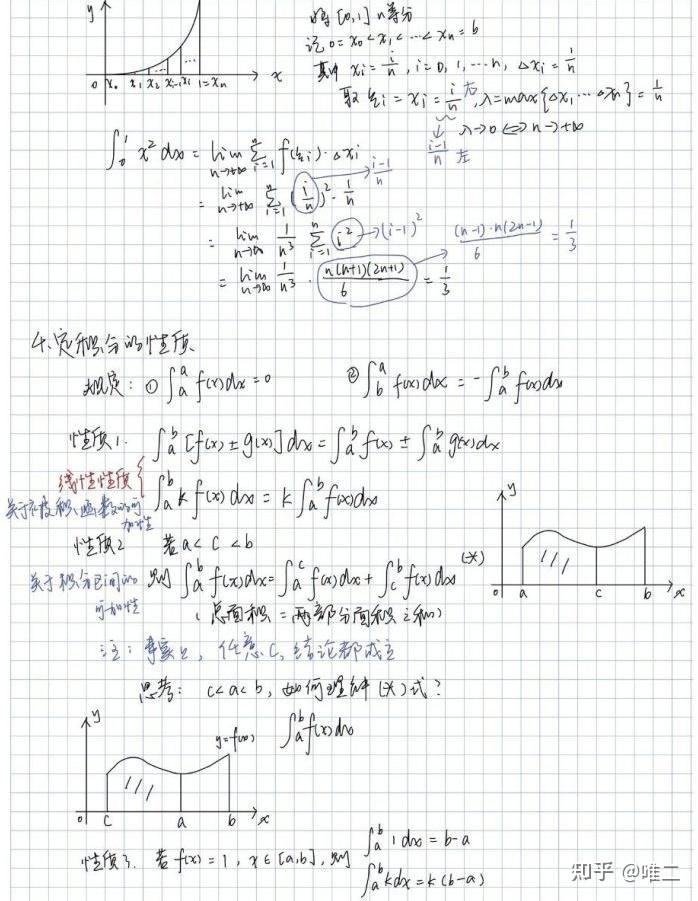 y
0 x₀ x₁ x₂ xᵢ₋₁ xᵢ 1=xₙ x
将[0,1] n等分
记 0=x₀<x₁<…<xₙ=b
其中 xᵢ=i/n, i=0,1,…n, Δxᵢ=1/n
取 ξᵢ=xᵢ=i/n 右, λ=max{Δx₁…Δxₙ}=1/n
↓ λ→0⟺n→+∞
(i-1)/n 左
∫₀¹ x²dx = lim n→+∞ Σ i=1 n f(ξᵢ)·Δxᵢ
= lim n→+∞ Σ i=1 n (i/n)²·1/n → (i-1)/n
= lim n→∞ 1/n³ Σ i=1 n i² → (i-1)²
= lim n→∞ 1/n³ · n(n+1)(2n+1)/6 = 1/3 → (n-1)·n(2n-1)/6 = 1/3
4.定积分的性质
规定: ① ∫ₐᵃ f(x)dx=0 ② ∫_b^a f(x)dx = -∫_a^b f(x)dx
性质1. ∫_a^b [f(x)±g(x)]dx = ∫_a^b f(x) ± ∫_a^b g(x)dx
线性性质 { ∫_a^b kf(x)dx = k∫_a^b f(x)dx
关于被积函数的可加性
性质2 若a<c<b
关于积分区间的可加性
则 ∫_a^b f(x)dx = ∫_a^c f(x)dx + ∫_c^b f(x)dx (*)
(总面积=两部分面积之和)
y
0 a c b x
注: 事实上, 任意C, 结论都成立
思考: c<a<b, 如何理解(*)式?
y y=f(x) ∫_a^b f(x)dx
0 c a b x
性质3. 若f(x)=1, x∈[a,b], 则 ∫_a^b 1dx = b-a
∫_a^b kdx = k(b-a)
知乎 @唯二